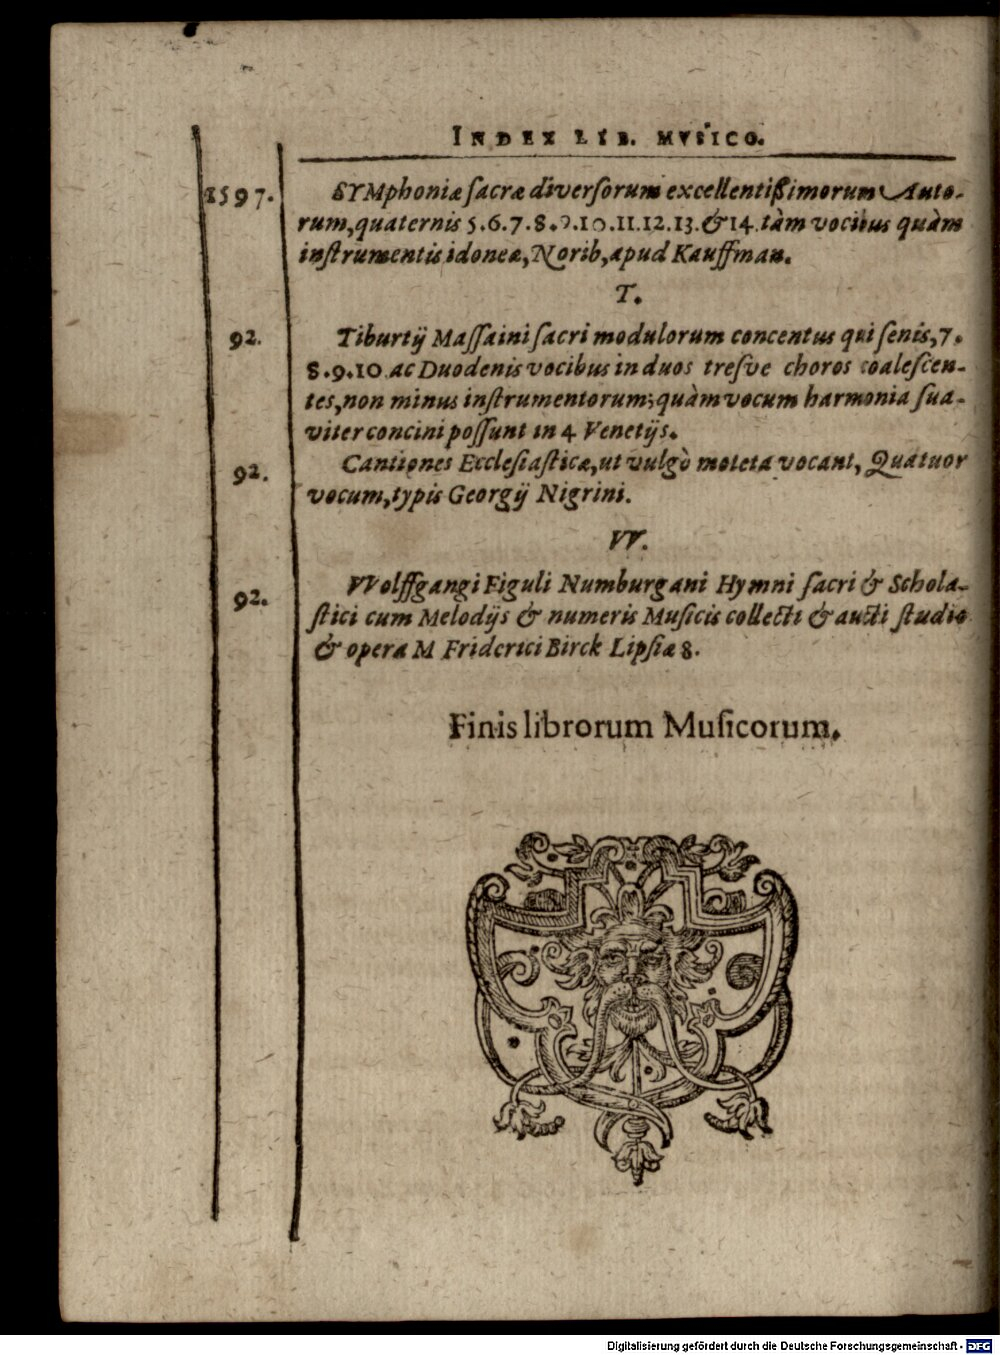 INDEX LIB. MVSICO.
1597. SYMphoniæ ſacræ diverſorum excellentiſſimorum Auto-
rum, quaternis 5.6.7.8.9.10.11.12.13.& 14. tàm vocibus quàm
inſtrumentis idoneæ, Norib, apud Kauffman.
T.
92. Tiburtij Maſſaini ſacri modulorum concentus qui ſenis, 7.
8.9.10. ac Duodenis vocibus in duos treſve choros coaleſcen-
tes, non minus inſtrumentorum, quàm vocum harmonia ſua-
viter concini poſſunt in 4 Venetijs.
92. Cantiones Eccleſiaſticæ, ut vulgò moteta vocant, Quatuor
vocum, typis Georgij Nigrini.
VV.
92. VVolffgangi Figuli Numburgani Hymni ſacri & Schola-
ſtici cum Melodijs & numeris Muſicis collecti & aucti ſtudio
& opera M Friderici Birck Lipſiæ 8.
Finis librorum Muſicorum.
Digitalisierung gefördert durch die Deutsche Forschungsgemeinschaft - DFG